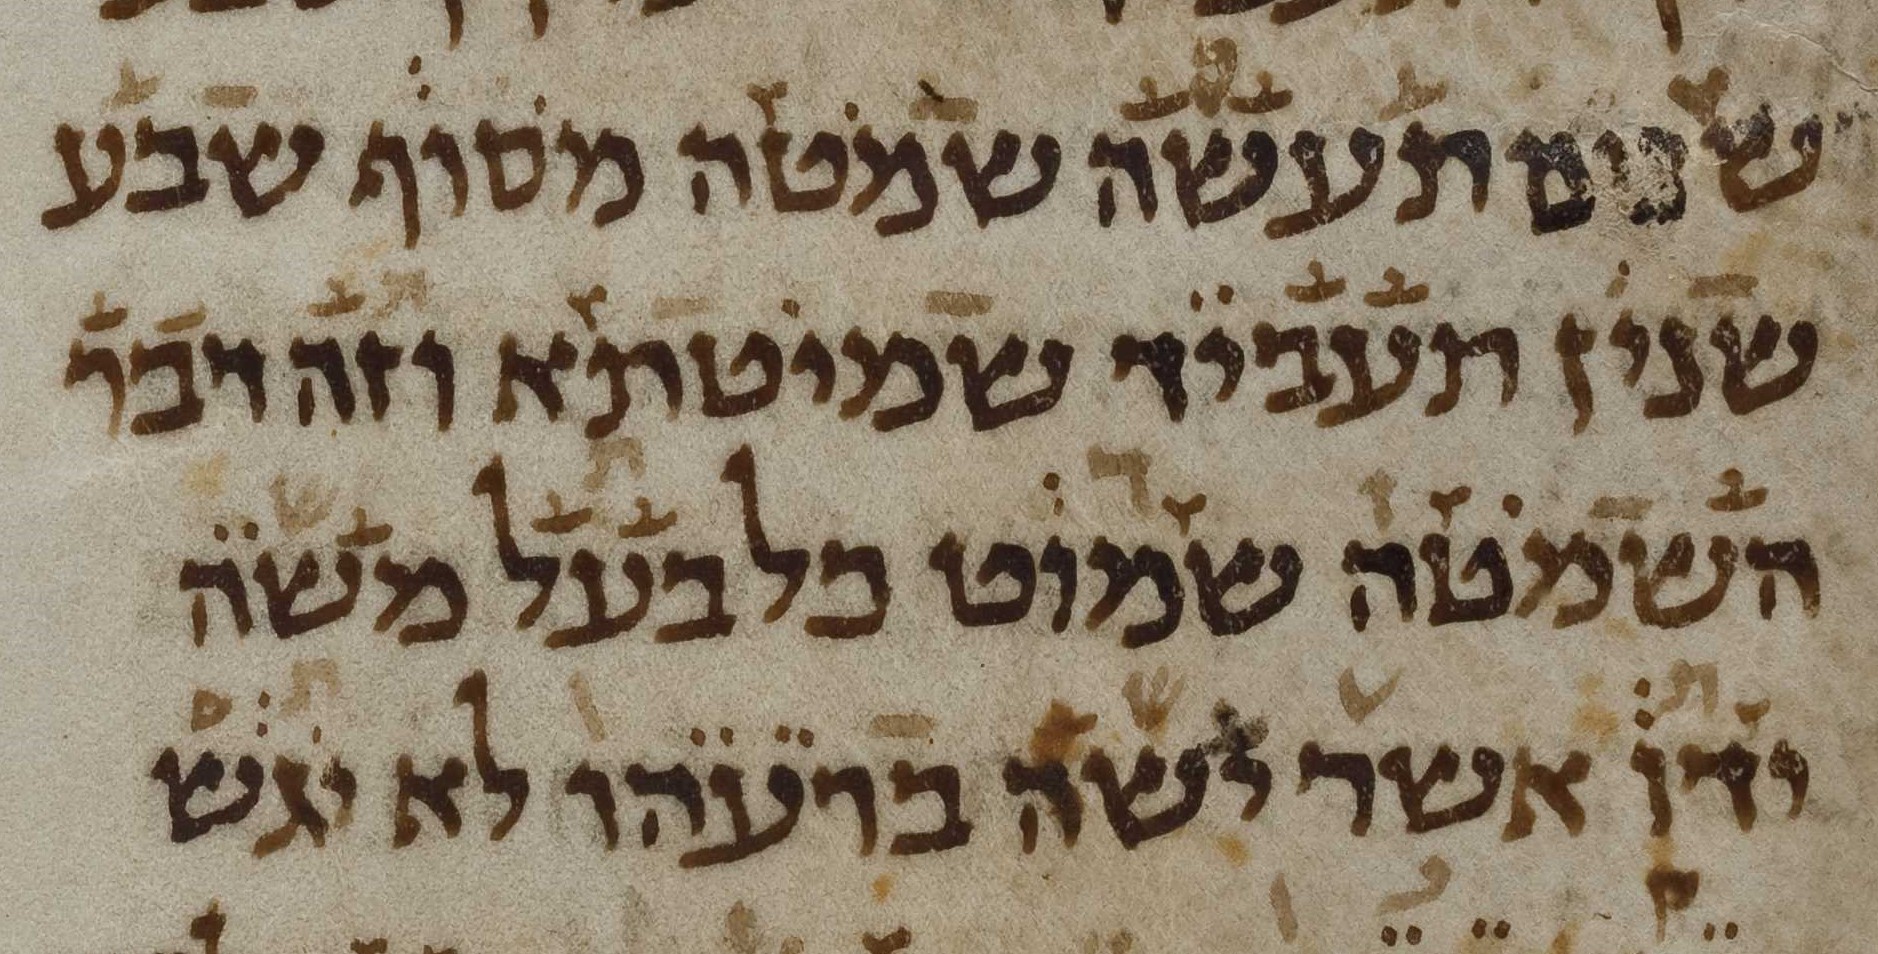 שנים תעשה שמטה מסוף שבע
שנין תעביד שמיטתא וזה דבר
השמטה שמוט כל בעל משה
ידו אשר ישה ברעהו לא יגש